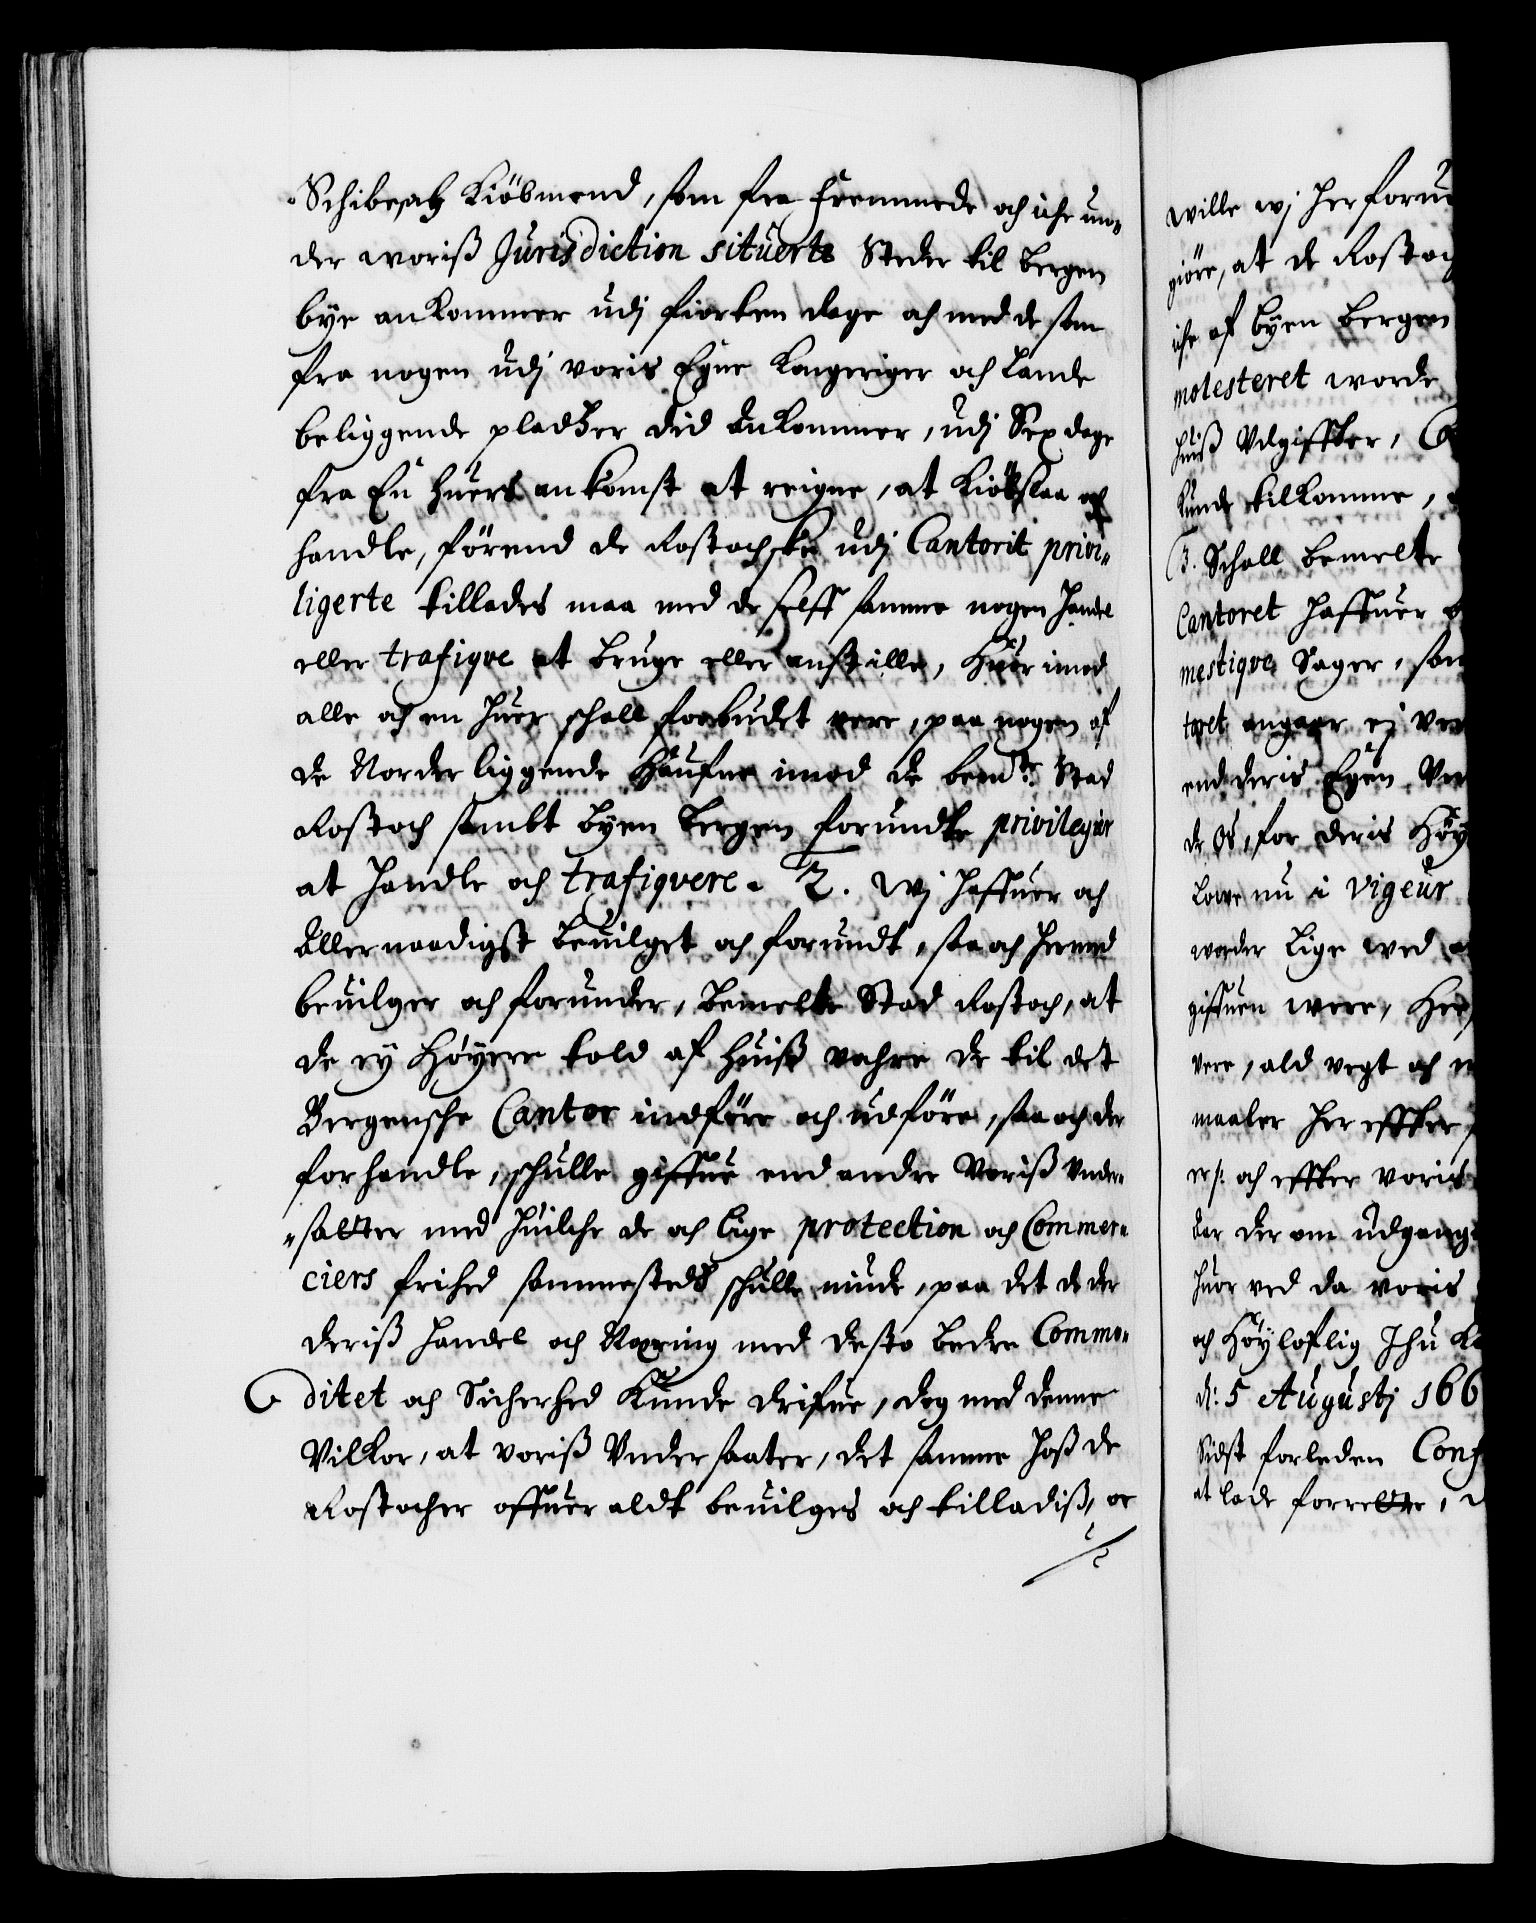 Schibe, och Kiöbmend, som fra fremmede och iche un„
der woriß Jurisdiction situerte Steder til Bergen
bye ankommer udj fiorten dage och med de som
fra nogen udj voris Egne Kongeriger och Lande
beliggende pladtzer did ankommer, udj Sex dage
fra En huers ankomst at reigne, at Kiöbslaa och
handle, förend de Rostochske udj Cantorit privi„
ligerte tillades maa med de selff samme nogen handel
eller trafiqve at bruge eller anstille, Huor imod
alle och en huer schall forbudet vere, paa nogen af
de Norder liggende Haufne imod de bemte Stad
Rostoch sambt byen Bergen forundte privilegier
at handle och trafiqvere. 2. Wj haffuer och
Allernaadigst beuilget och forundt, saa och hermed
beuilger och forunder, bemelte Stad Rostoch, at
de ey Höyere told af huiß vahre de til det
Bergensche Cantor indföre och udföre, saa och der
forhandle, schulle giffue end andre Voriß Under„
„saatter med huilche de och lige protection och Commer„
ciers frihed sammesteds schulle niude, paa det de der
deriß handel och Næring med desto bedre Commo„
ditet och Sicherhed Kunde drifue, dog med denne
Vilkor, at voriß Undersaater, det samme hoß de
Rostocher offuer aldt beuilges och tilladiß, oc
wille wj her foru
giöre, at de Rostoch
iche af byen Bergen
molesteret worde
huiß Udgiffter, C
Kunde tilkomme,
3. Schall bemelte
Cantoret haffuer
mestiqve Sager, som
toret angaar ej
end deris Egen
de Os, for deris Höy
Lowe nu i Vigeur
worder lige wed
giffuen were, Her
vere, ald vegt och
maaler her effter
och effter voris
der om udgang
huor ved da voris
och Höyloflig Ihu
d: 5 Augustj 166
Sidst forleden Conf
at lade forrette,